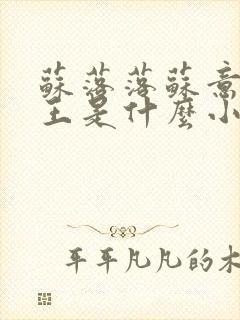 蘇落落蘇意
主是什麼小
平平凡凡的木